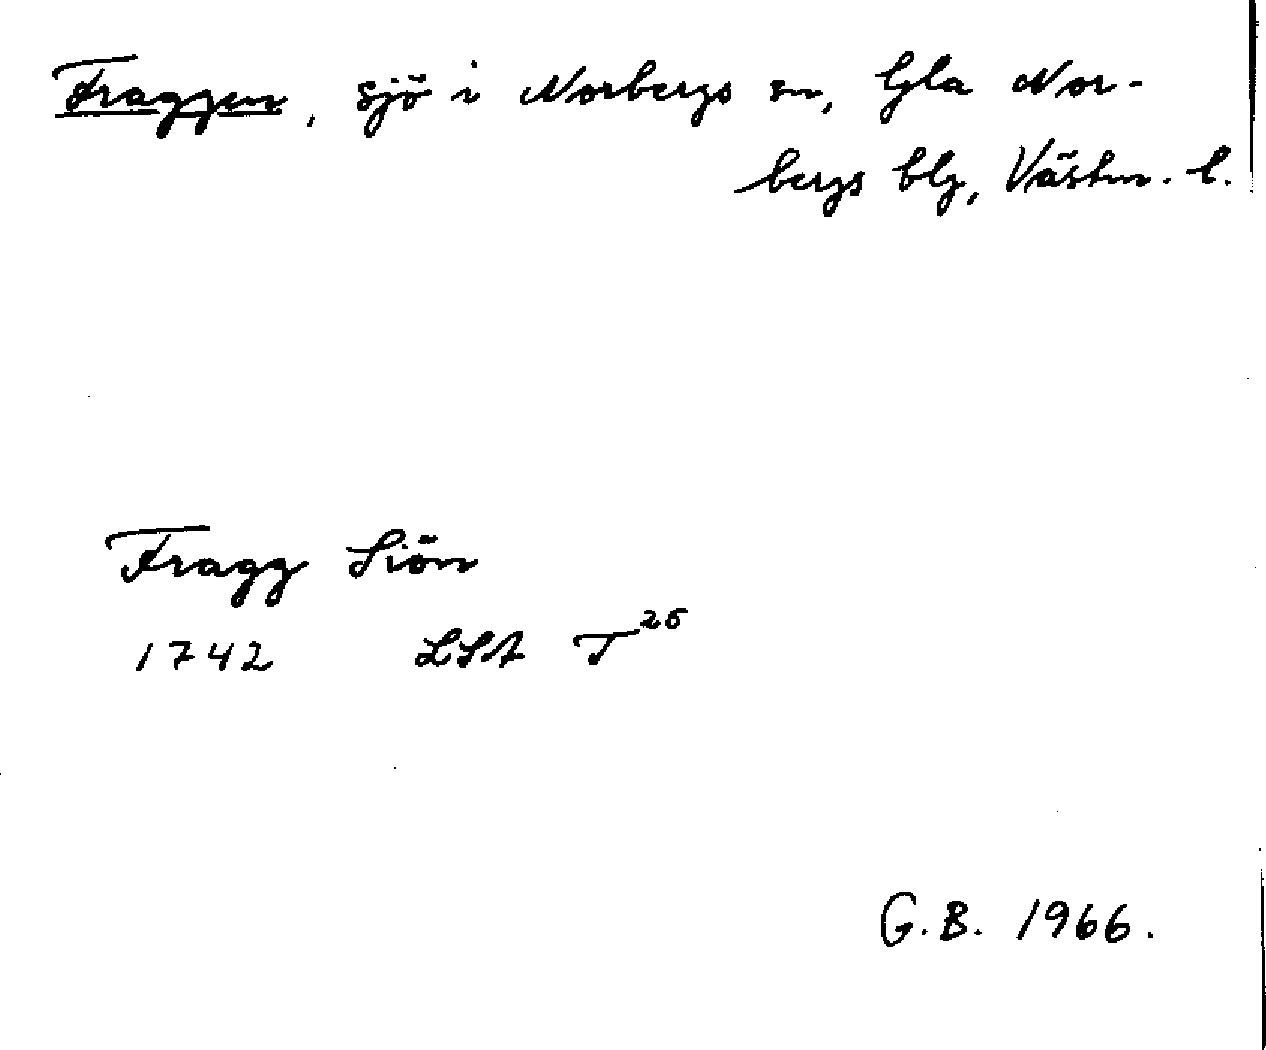 Fraggen, sjö i Norbergs sn, Gla Nor-
bergs blg, Västm. l.
Fragg Siön
1742 LSA T26
G.B. 1966.